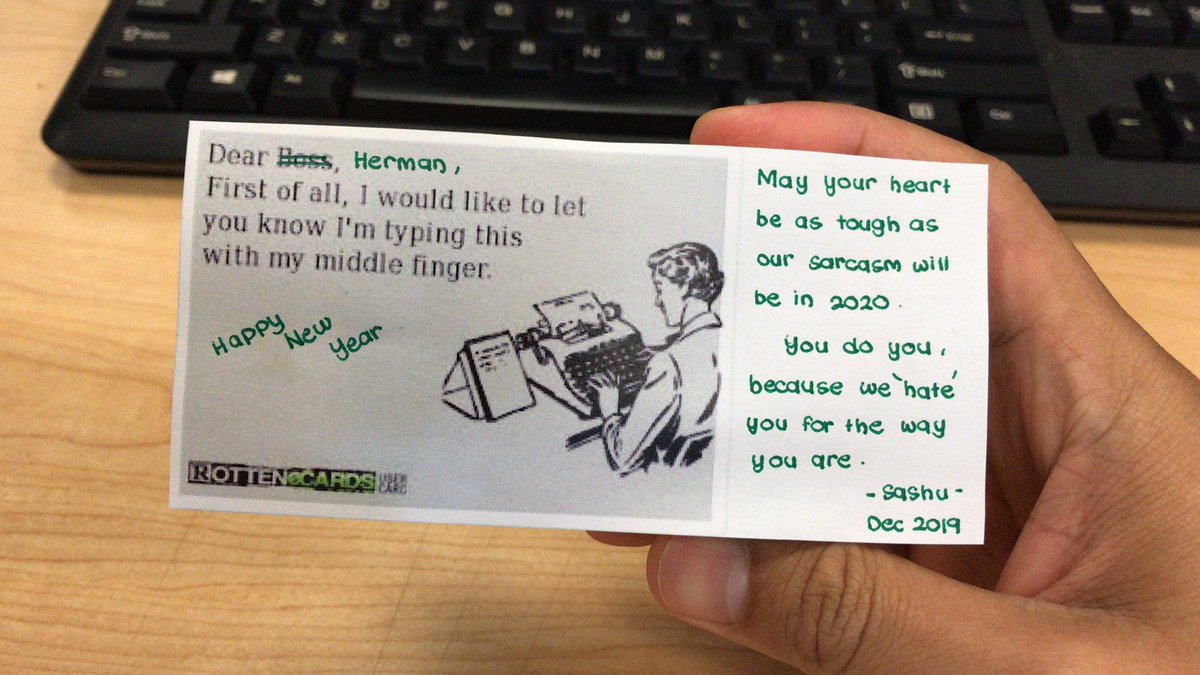 Dear Boss, Herman,
First of all, I would like to let
you know I'm typing this
with my middle finger.
Happy New Year
ROTTENeCARDS USER CARD
May your heart
be as tough as
our sarcasm will
be in 2020.
You do you,
because we 'hate'
you for the way
you are.
- Sashu -
Dec 2019